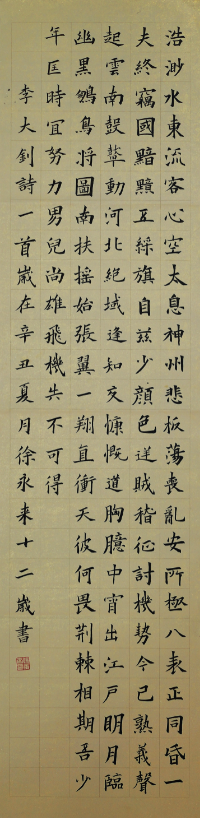 浩渺水東流客心空太息神州悲板蕩喪亂安所極八表正同昏一
夫終竊國黯黯五綵旗自兹少顏色逆賊稽征討機勢今已熟義聲
起雲南鼓鼙動河北絕域逢知交慷慨道胸臆中宵出江戶明月臨
幽黑鵬鳥將圖南扶摇始張翼一翔直衝天彼何畏荆棘相期吾少
年匡時宜努力男兒尚雄飛機失不可得
李大釗詩一首歲在辛丑夏月徐永来十二歲書